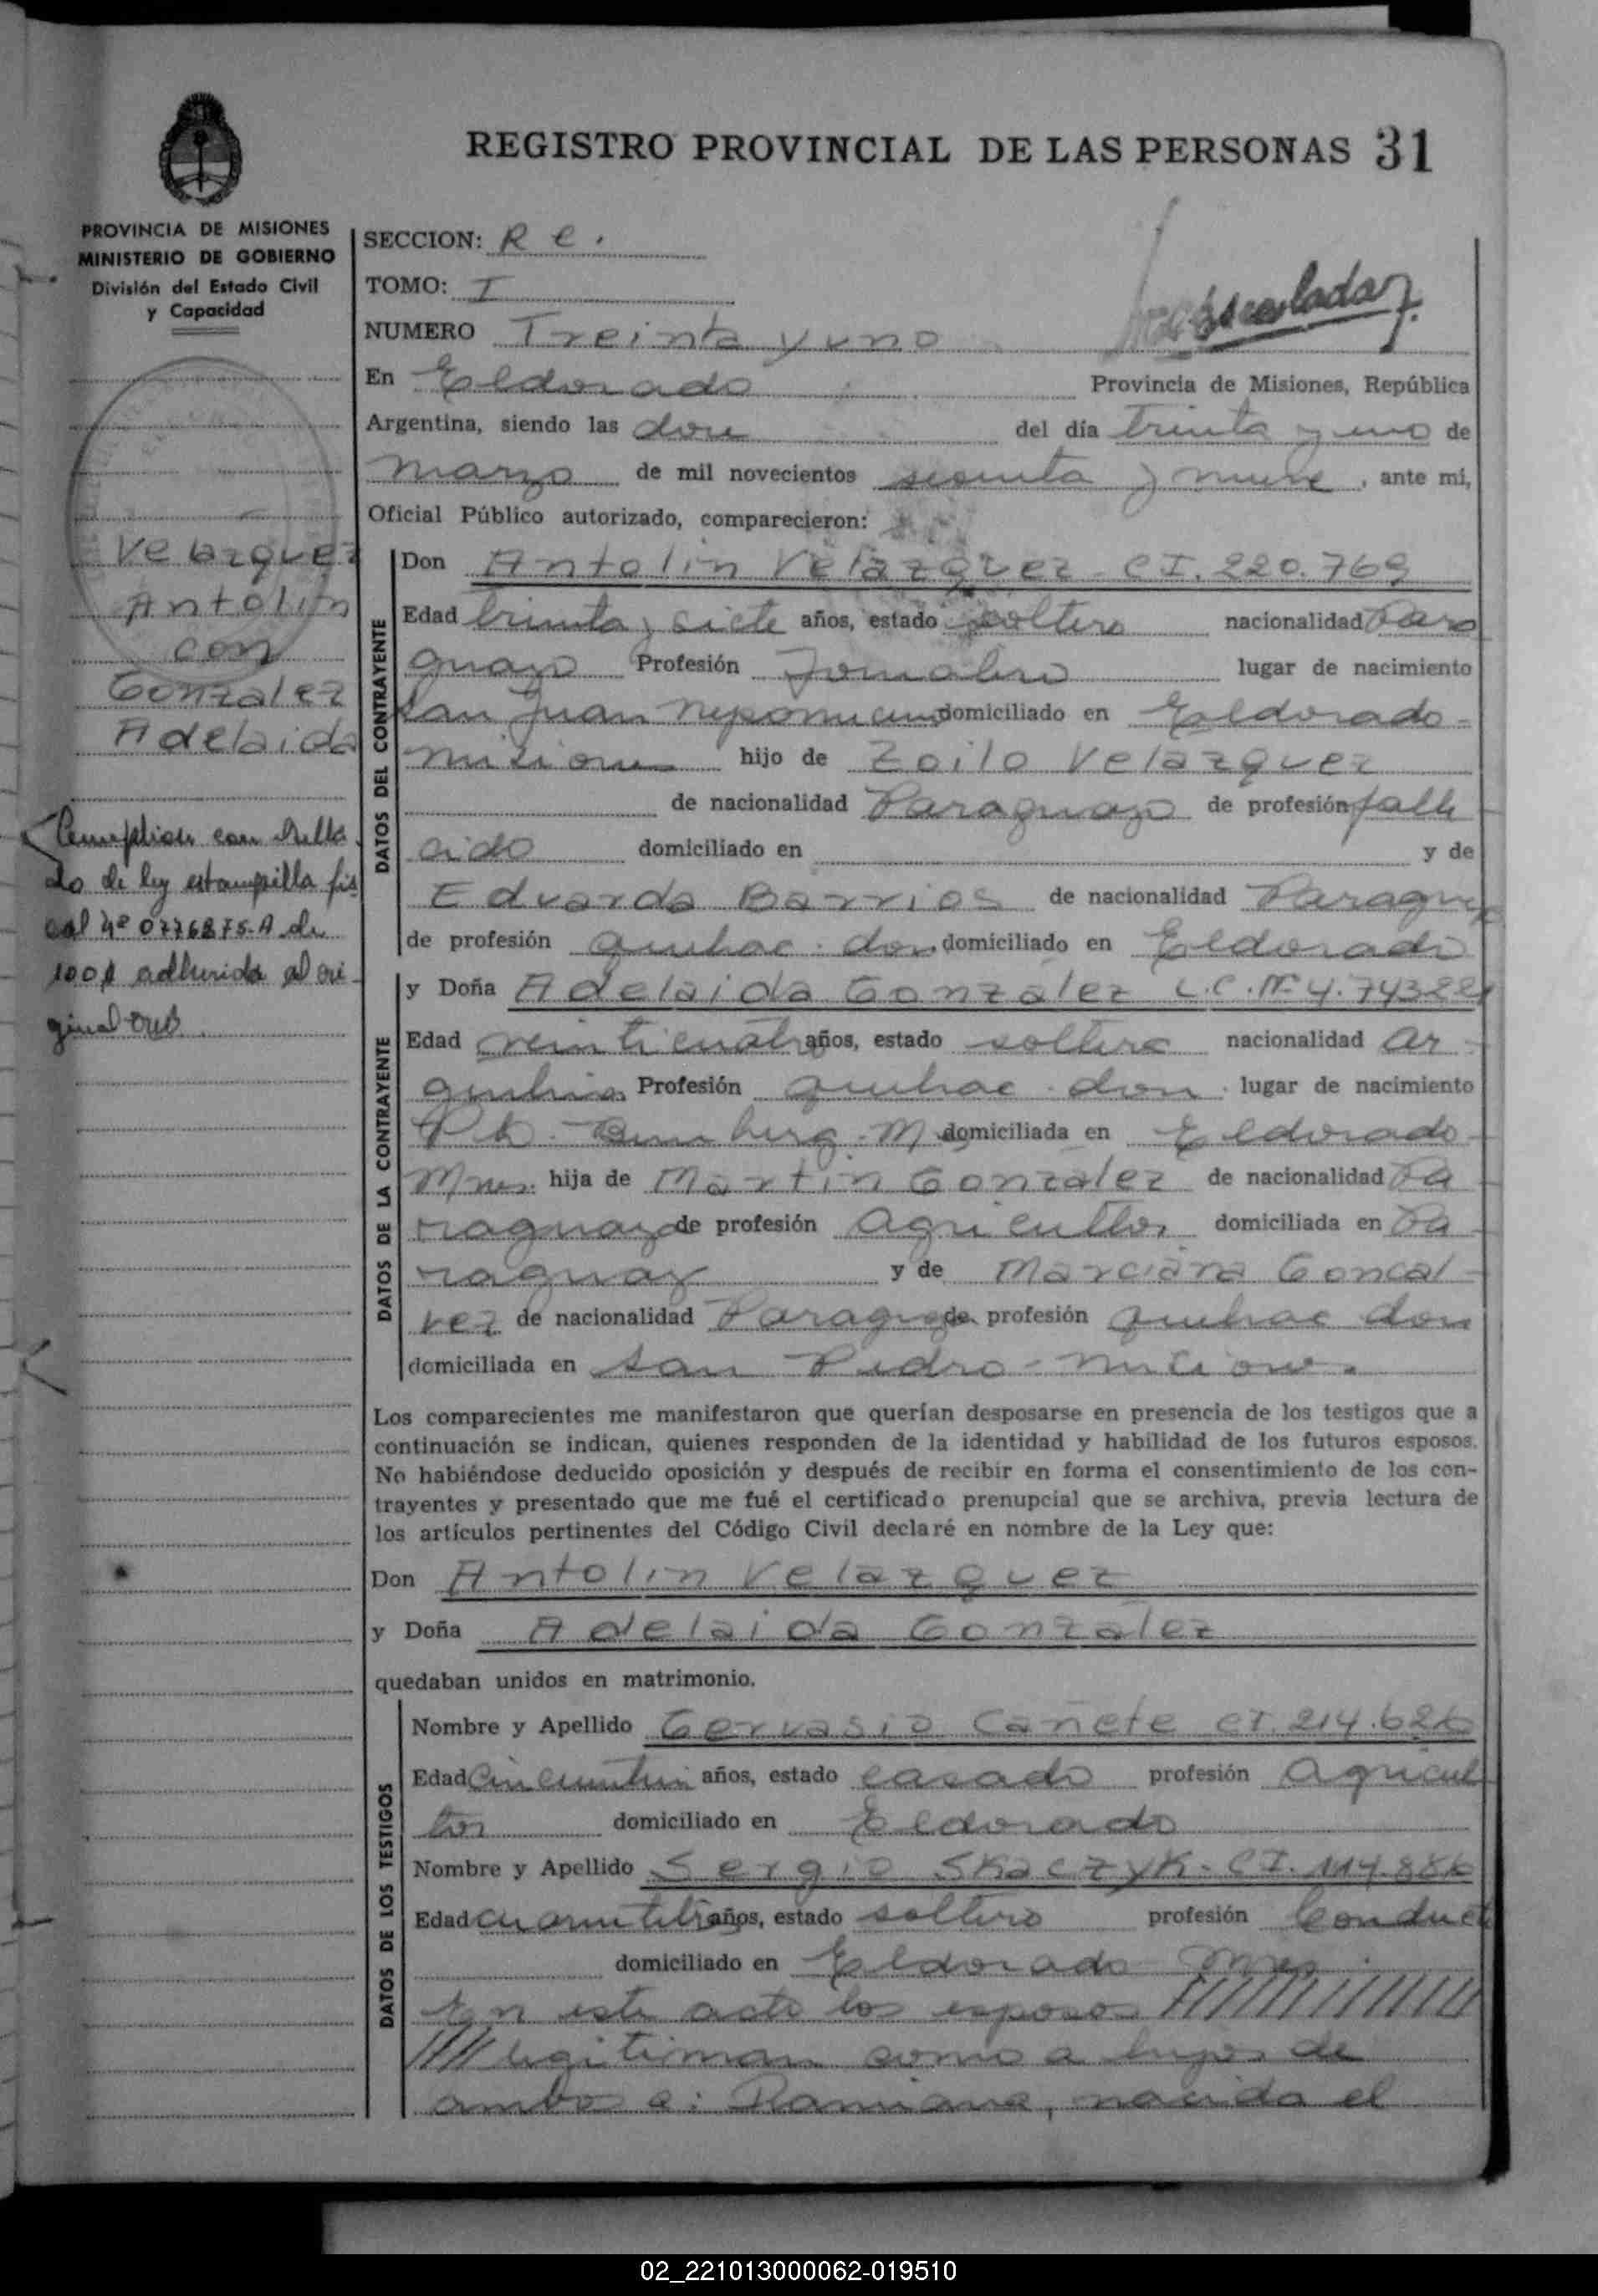 REGISTRO PROVINCIAL DE LAS PERSONAS 31
PROVINCIA DE MISIONES
MINISTERIO DE GOBIERNO
División del Estado Civil
y Capacidad
SECCION: Re.
TOMO: I
NUMERO Treinta y uno
En Eldorado Provincia de Misiones, República
Argentina, siendo las doce del día treinta y uno de
marzo de mil novecientos sesenta y nueve, ante mí,
Oficial Público autorizado, comparecieron:
Velazquez
Antolin
con
Gonzalez
Adelaida
Cumplion con sella
do de ley estampilla fis
cal Nº 0776875-A de
100$ adherida al ori
ginal
DATOS DEL CONTRAYENTE
Don Antolin Velazquez - CI. 220.769
Edad treinta y siete años, estado soltero nacionalidad Para
guayo Profesión Jornalero lugar de nacimiento
San Juan Nepomuceno domiciliado en Eldorado -
misiones hijo de Zoilo Velazquez
de nacionalidad Paraguayo de profesión falle
cido domiciliado en y de
Eduarda Barrios de nacionalidad Paraguaya
de profesión quehac. dom domiciliado en Eldorado
DATOS DE LA CONTRAYENTE
y Doña Adelaida Gonzalez L.C. Nº 4.743221
Edad veinticuatro años, estado soltera nacionalidad ar
gentina Profesión quehac. dom. lugar de nacimiento
domiciliada en Eldorado -
Mnes. hija de Martin Gonzalez de nacionalidad Pa
raguayo de profesión agricultor domiciliada en Pa
raguay y de Marciana Goncal
vez de nacionalidad Paraguaya de profesión quehac dom
domiciliada en San Pedro - misiones.
Los comparecientes me manifestaron que querían desposarse en presencia de los testigos que a
continuación se indican, quienes responden de la identidad y habilidad de los futuros esposos.
No habiéndose deducido oposición y después de recibir en forma el consentimiento de los con-
trayentes y presentado que me fué el certificado prenupcial que se archiva, previa lectura de
los artículos pertinentes del Código Civil declaré en nombre de la Ley que:
Don Antolin Velazquez
y Doña Adelaida Gonzalez
quedaban unidos en matrimonio.
DATOS DE LOS TESTIGOS
Nombre y Apellido Gervasio Cañete CI. 214.626
Edad años, estado casado profesión agricul
tor domiciliado en Eldorado
Nombre y Apellido Sergio Skaczyk - CI. 114.886
Edad años, estado soltero profesión Conduct
domiciliado en Eldorado Mnes.
En este acto los esposos
legitiman como a hijos de
ambos a: Damiana, nacida el
02_221013000062-019510